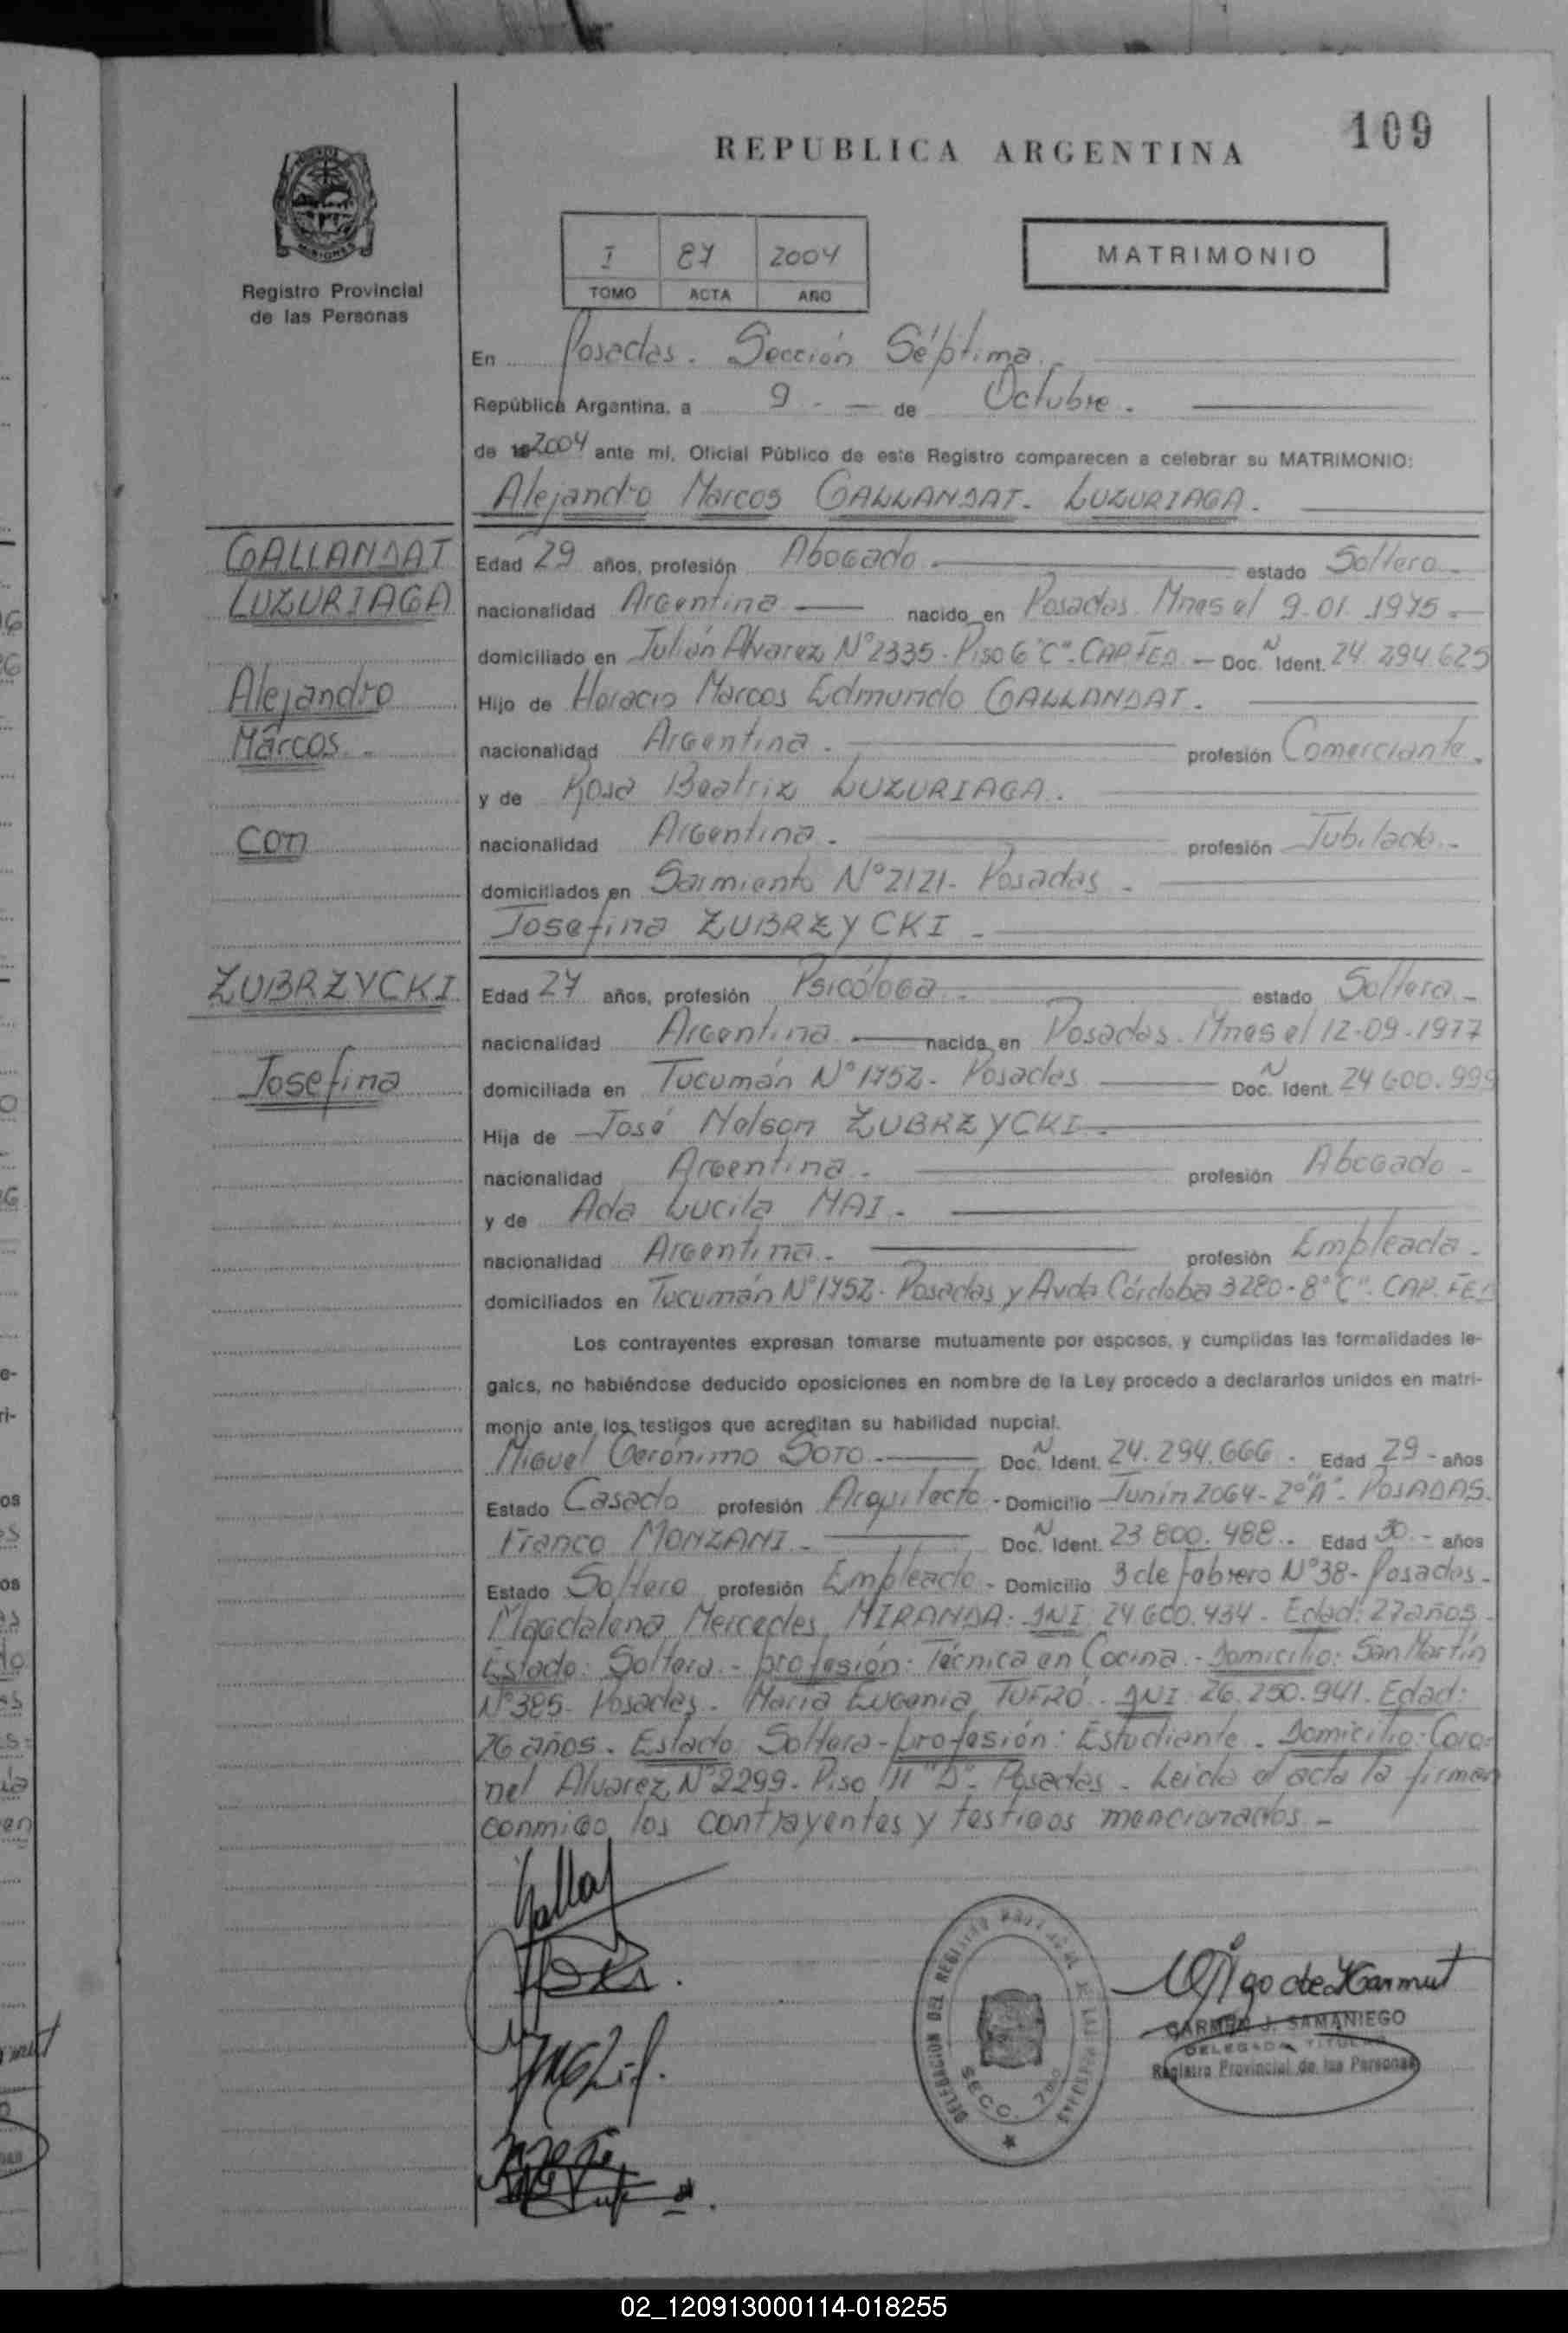 109
REPUBLICA ARGENTINA
MISIONES
Registro Provincial
de las Personas
I 87 2004
TOMO ACTA AÑO
MATRIMONIO
En Posadas. Sección Séptima.
República Argentina, a 9 - de Octubre.
de 2004 ante mi, Oficial Público de este Registro comparecen a celebrar su MATRIMONIO:
Alejandro Marcos GALLANDAT - LUZURIAGA.
GALLANDAT
LUZURIAGA
Alejandro
Marcos.
con
ZUBRZYCKI
Josefina
Edad 29 años, profesión Abogado estado Soltero
nacionalidad Argentina nacido en Posadas. Mnes el 9-01-1975
domiciliado en Julián Alvarez Nº 2335 - Piso 6 "C" - CAP. FED. - Doc. N Ident. 24.294.625
Hijo de Horacio Marcos Edmundo GALLANDAT.
nacionalidad Argentina. profesión Comerciante.
y de Rosa Beatriz LUZURIAGA.
nacionalidad Argentina. profesión Jubilada.
domiciliados en Sarmiento Nº 2121 - Posadas
Josefina ZUBRZYCKI -
Edad 27 años, profesión Psicóloga. estado Soltera
nacionalidad Argentina nacida en Posadas. Mnes el 12-09-1977
domiciliada en Tucumán Nº 1752 - Posadas Doc. N Ident. 24.600.999
Hija de José Nelson ZUBRZYCKI.
nacionalidad Argentina. profesión Abogado
y de Ada Lucila MAI.
nacionalidad Argentina. profesión Empleada.
domiciliados en Tucumán Nº 1752 - Posadas y Avda Córdoba 3280 - 8º "C" - CAP. FED
Los contrayentes expresan tomarse mutuamente por esposos, y cumplidas las formalidades le-
gales, no habiéndose deducido oposiciones en nombre de la Ley procedo a declararlos unidos en matri-
monio ante los testigos que acreditan su habilidad nupcial.
Miguel Gerónimo SOTO. Doc. N Ident. 24.294.666. Edad 29 - años
Estado Casado profesión Arquitecto - Domicilio Junín 2064 - 2º "A" - POSADAS.
Franco MONZANI. Doc. N Ident. 23.800.488. Edad 30 - años
Estado Soltero profesión Empleado - Domicilio 3 de febrero Nº 38 - Posadas -
Magdalena Mercedes MIRANDA: DNI: 24.600.434 - Edad: 27 años -
Estado: Soltera - profesión: Técnica en Cocina - Domicilio: San Martín
Nº 385 - Posadas - María Eugenia TUFRÓ - DNI: 26.250.941. Edad:
26 años. Estado: Soltera - profesión: Estudiante - Domicilio: Coro-
nel Alvarez Nº 2299 - Piso 11 "D" - Posadas - Leida el acta la firman
conmigo los contrayentes y testigos mencionados. -
DELEGACION DEL REGISTRO PROVINCIAL DE LAS PERSONAS
SECC. 7ma
CARMEN J. SAMANIEGO
DELEGADA TITULAR
Registro Provincial de las Personas
02_120913000114-018255